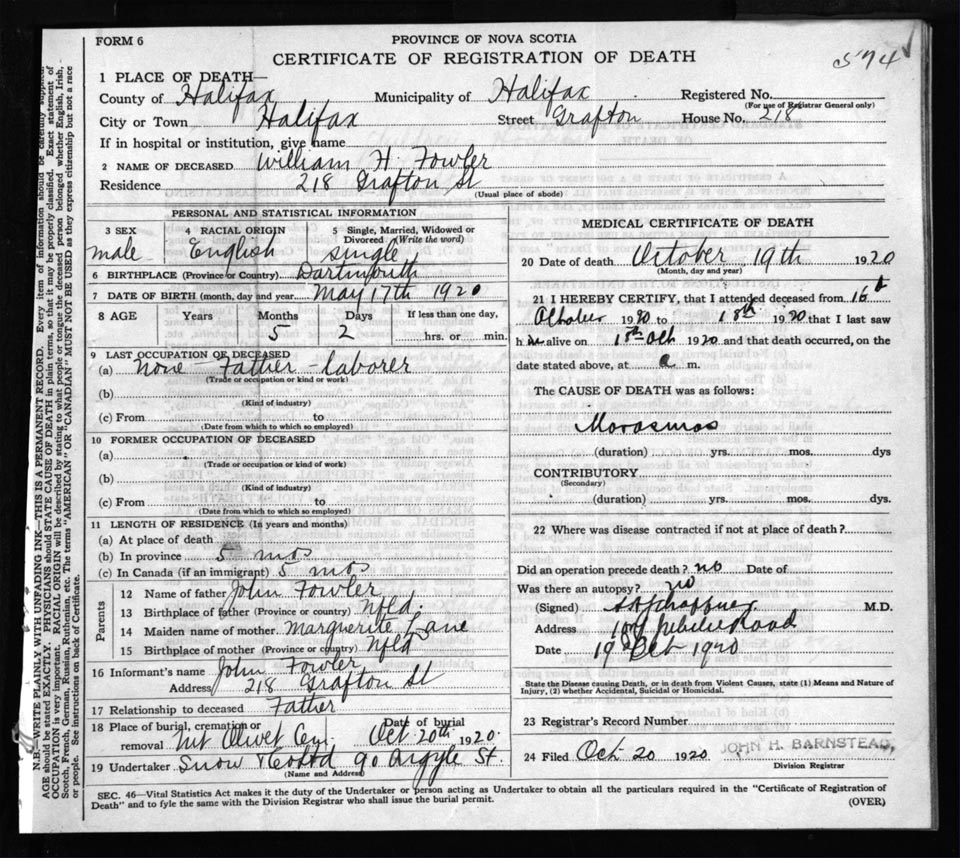 FORM 6
PROVINCE OF NOVA SCOTIA
CERTIFICATE OF REGISTRATION OF DEATH
574
1 PLACE OF DEATH—
County of Halifax Municipality of Halifax Registered No.
(For use of Registrar General only)
City or Town Halifax Street Grafton House No. 218
If in hospital or institution, give name
2 NAME OF DECEASED William H. Fowler
Residence 218 Grafton St
(Usual place of abode)
PERSONAL AND STATISTICAL INFORMATION
3 SEX 4 RACIAL ORIGIN 5 Single, Married, Widowed or
Divorced (Write the word)
male English single
6 BIRTHPLACE (Province or Country) Dartmouth
7 DATE OF BIRTH (month, day and year) May 17th 1920
8 AGE Years Months Days If less than one day,
5 2 hrs. or min.
9 LAST OCCUPATION OF DECEASED
(a) None - Father - laborer
(Trade or occupation or kind or work)
(b)
(Kind of industry)
(c) From to
(Date from which to which so employed)
10 FORMER OCCUPATION OF DECEASED
(a)
(Trade or occupation or kind of work)
(b)
(Kind of industry)
(c) From to
(Date from which to which so employed)
11 LENGTH OF RESIDENCE (In years and months)
(a) At place of death
(b) In province 5 mos
(c) In Canada (if an immigrant) 5 mos
Parents
12 Name of father John Fowler
13 Birthplace of father (Province or country) Nfld.
14 Maiden name of mother Marguerite Lane
15 Birthplace of mother (Province or country) Nfld
16 Informant's name John Fowler
Address 218 Grafton St
17 Relationship to deceased Father
18 Place of burial, cremation or Date of burial
removal Mt Olivet Cem. Oct 20th 1920.
19 Undertaker Snow 90 Argyle St.
(Name and Address)
MEDICAL CERTIFICATE OF DEATH
20 Date of death October 19th 1920
(Month, day and year)
21 I HEREBY CERTIFY, that I attended deceased from 16th
October 1920 to 18th 1920 that I last saw
h im alive on 18th Oct 1920 and that death occurred, on the
date stated above, at a m.
The CAUSE OF DEATH was as follows:
Marasmas
(duration) yrs. mos. dys
CONTRIBUTORY
(Secondary)
(duration) yrs. mos. dys.
22 Where was disease contracted if not at place of death?
Did an operation precede death? no Date of
Was there an autopsy? no
(Signed) M.D.
Address Jubilee Road
Date 19 Oct 1920
State the Disease causing Death, or in death from Violent Causes, state (1) Means and Nature of
Injury, (2) whether Accidental, Suicidal or Homicidal.
23 Registrar's Record Number
24 Filed Oct 20 1920 JOHN H. BARNSTEAD,
Division Registrar
SEC. 46—Vital Statistics Act makes it the duty of the Undertaker or person acting as Undertaker to obtain all the particulars required in the "Certificate of Registration of
Death" and to fyle the same with the Division Registrar who shall issue the burial permit.
(OVER)
N.B.—WRITE PLAINLY WITH UNFADING INK—THIS IS A PERMANENT RECORD. Every item of information should be carefully supplied.
AGE should be stated EXACTLY. PHYSICIANS should STATE CAUSE OF DEATH in plain terms, so that it may be properly classified. Exact statement of
OCCUPATION is very important. RACIAL ORIGIN will be described by stating to what people or tongue the deceased person belonged, whether English, Irish,
Scotch, French, German, Russian, Ruthenian, etc. The terms "AMERICAN" OR "CANADIAN" MUST NOT BE USED as they express citizenship but not a race
or people. See instructions on back of Certificate.